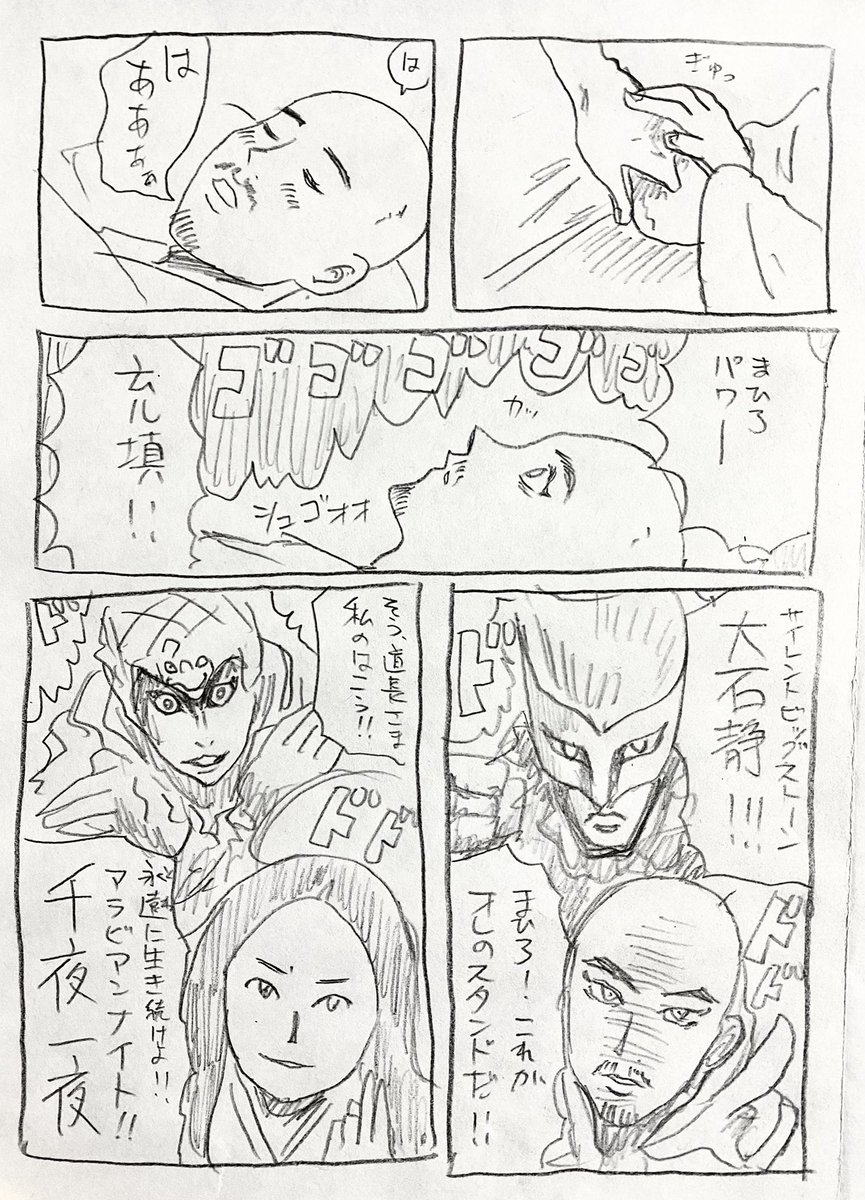 ぎゅっ
は
は
あああぁ
まひろ
パワー
ゴゴゴゴゴ
カッ
シュゴオオ
充填!!
サイレントビッグストーン
大石静!!!
ド
まひろ!これが
オレのスタンドだ!!
ドド
そう、道長さま
私のはこう!!
ド
ドド
永遠に生き続けよ!!
アラビアンナイト!!
千夜一夜